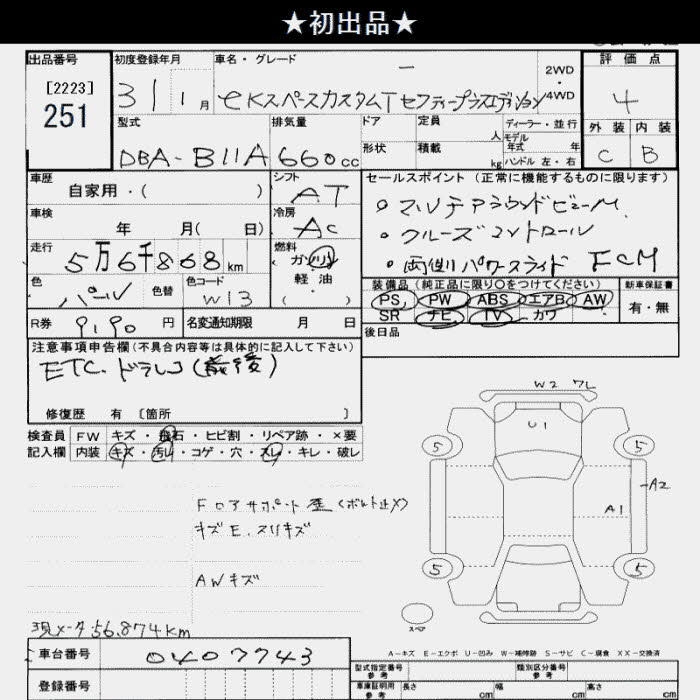 ★初出品★
出品番号
[2223]
251
初度登録年月
31 1月
車名・グレード
eKスペースカスタムT セーフティープラスエディション
2WD
・
4WD
評価点
4
外装 内装
C B
型式
DBA-B11A
排気量
660cc
ドア
形状
定員 人
積載 kg
ディーラー・並行
モデル年式 年
ハンドル 左・右
車歴
自家用・( )
車検
年 月( 日)
走行
5万6千868km
色
パール 色替
色コード
W13
シフト
AT
冷房
AC
燃料
ガソリン
軽油
( )
セールスポイント(正常に機能するものに限ります)
。マルチアラウンドビューM.
。クルーズコントロール
。両側パワースライド FCM
装備品(純正品に限り○をつけてください)
PS, PW ABS エアB AW
SR ナビ, TV カワ
新車保証書
有・無
R券 9,190 円
名変通知期限 月 日
後日品
注意事項申告欄(不具合内容等は具体的に記入して下さい)
ETC. ドラレコ(前後)
修復歴 有 〔箇所 〕
検査員 FW キズ・飛石・ヒビ割・リペア跡・×要
記入欄 内装 キズ・汚れ・コゲ・穴・スレ・キレ・破レ
Fロアサポート歪(ボルト止メ)
キズE.スリキズ
AWキズ
現メータ56,874km
車台番号 0407743
登録番号
W2 ワレ
U1
5 5
A2
A1
5 5
スペア
A-キズ E-エクボ U-凹み W-補修跡 S-サビ C-腐食 XX-交換済
型式指定番号
参考
類別区分番号
参考
車庫証明用
参考
長さ cm 幅 cm 高さ cm